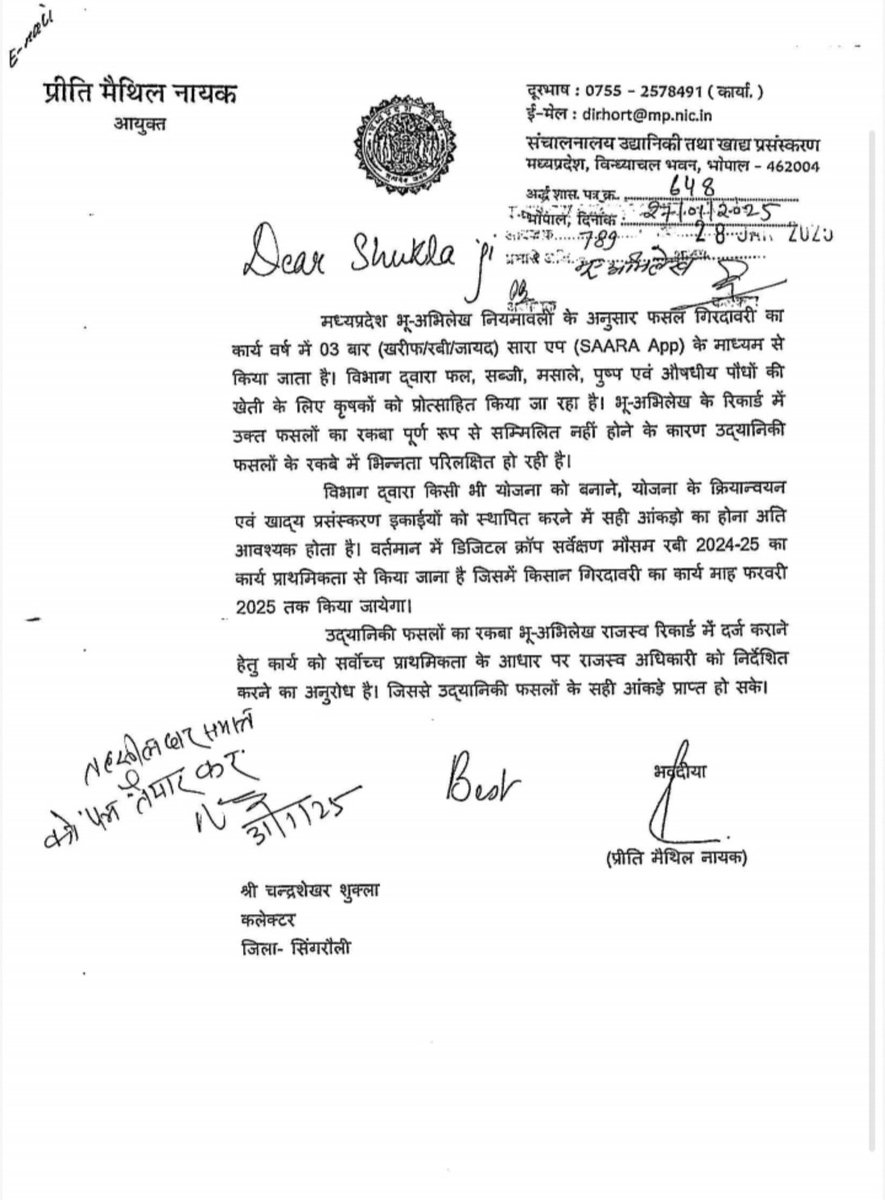 E-mail
प्रीति मैथिल नायक
आयुक्त
दूरभाष : 0755 - 2578491 ( कार्या. )
ई-मेल : dirhort@mp.nic.in
संचालनालय उद्यानिकी तथा खाद्य प्रसंस्करण
मध्यप्रदेश, विन्ध्याचल भवन, भोपाल - 462004
अर्द्ध शास. पत्र क्र. 648
भोपाल, दिनांक : 27/01/2025
789 28 JAN 2025
भू अभिलेख
Dear Shukla ji
मध्यप्रदेश भू-अभिलेख नियमावली के अनुसार फसल गिरदावरी का
कार्य वर्ष में 03 बार (खरीफ/रबी/जायद) सारा एप (SAARA App) के माध्यम से
किया जाता है। विभाग द्वारा फल, सब्जी, मसाले, पुष्प एवं औषधीय पौधों की
खेती के लिए कृषकों को प्रोत्साहित किया जा रहा है। भू-अभिलेख के रिकार्ड में
उक्त फसलों का रकबा पूर्ण रूप से सम्मिलित नहीं होने के कारण उद्यानिकी
फसलों के रकबे में भिन्नता परिलक्षित हो रही है।
विभाग द्वारा किसी भी योजना को बनाने, योजना के क्रियान्वयन
एवं खाद्य प्रसंस्करण इकाईयों को स्थापित करने में सही आंकड़ो का होना अति
आवश्यक होता है। वर्तमान में डिजिटल क्रॉप सर्वेक्षण मौसम रबी 2024-25 का
कार्य प्राथमिकता से किया जाना है जिसमें किसान गिरदावरी का कार्य माह फरवरी
2025 तक किया जायेगा।
उद्यानिकी फसलों का रकबा भू-अभिलेख राजस्व रिकार्ड में दर्ज कराने
हेतु कार्य को सर्वोच्च प्राथमिकता के आधार पर राजस्व अधिकारी को निर्देशित
करने का अनुरोध है। जिससे उद्यानिकी फसलों के सही आंकड़े प्राप्त हो सके।
तहसीलदार समस्त
को पत्र तैयार कर
31/1/25
Best
भवदीया
(प्रीति मैथिल नायक)
श्री चन्द्रशेखर शुक्ला
कलेक्टर
जिला- सिंगरौली